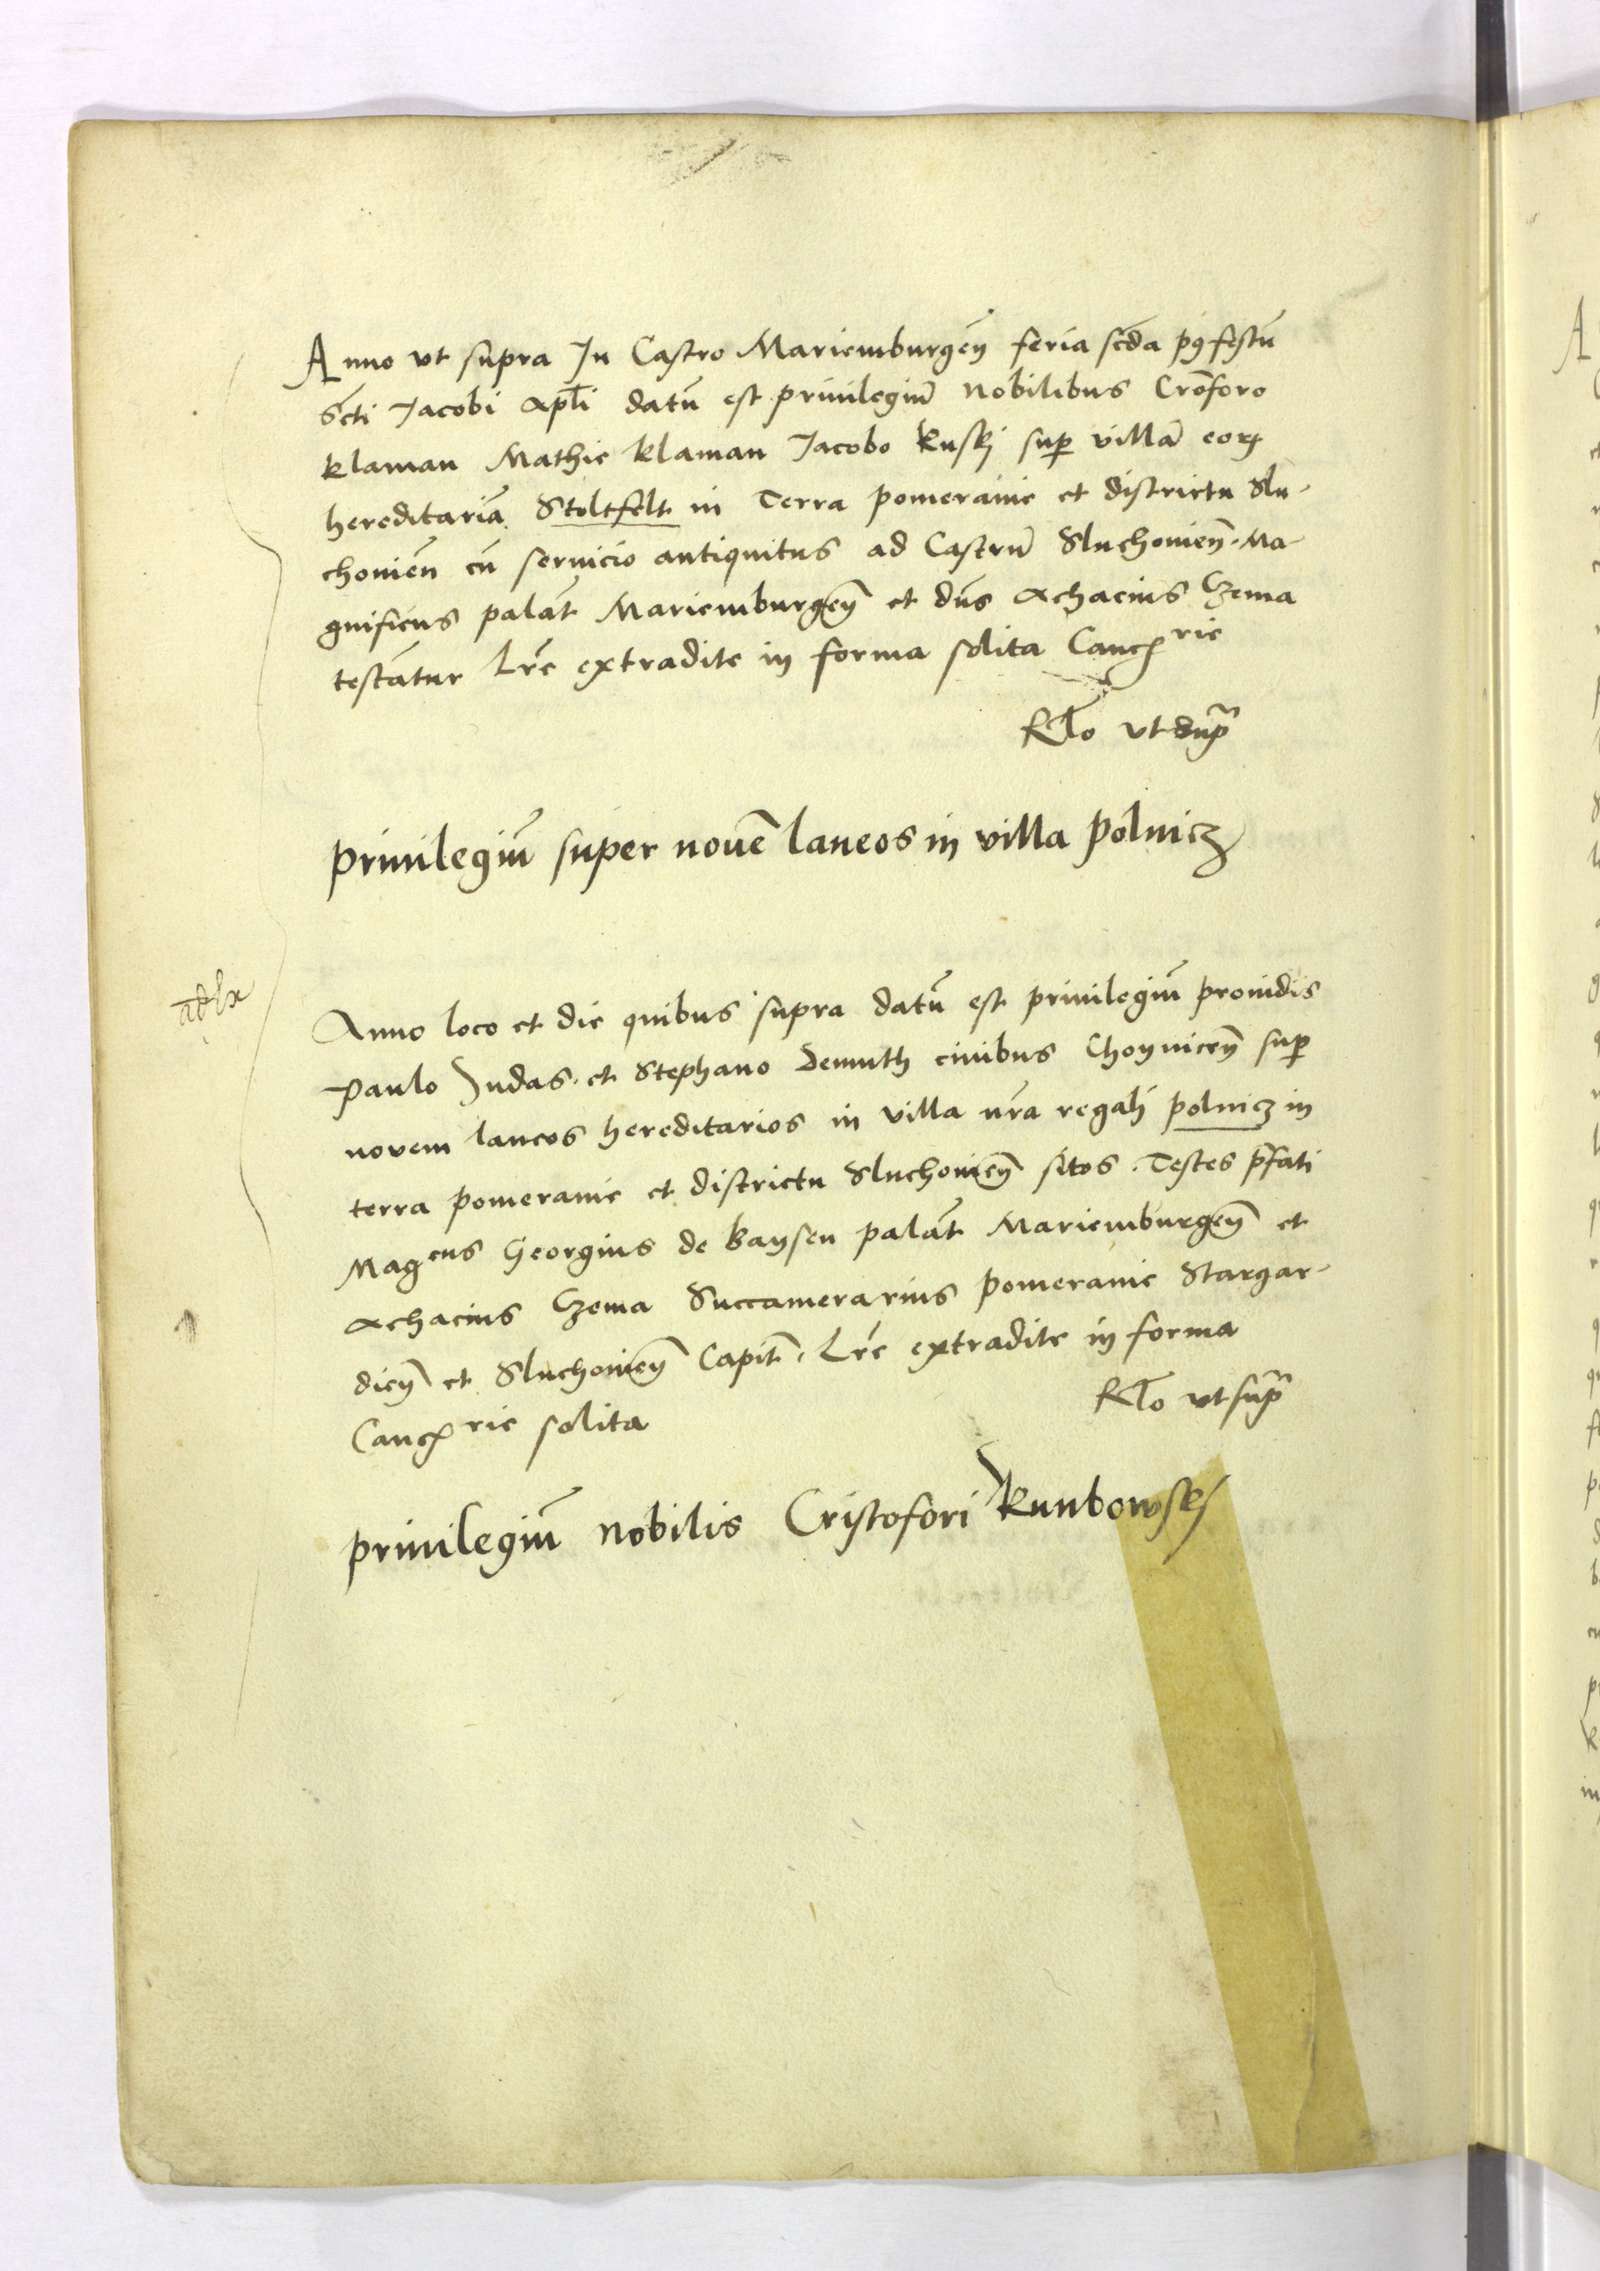 Anno vt supra In Castro Mariemburgeñ feria scđa pꝰ festũ
Scti Jacobi Apłi datũ est priuilegiũ Nobilibus Crōforo
klaman Mathie klaman Jacobo kuskj sup villā eorꝫ
hereditariā Stoltfelt in Terra pomeranie et districtu Slu-
chonieñ cũ seruicio antiquitus ad Castrũ Sluchonieñ. Ma
gnificus palāt Mariemburgeñ et dñs Achacius Czema
testātur Lr̃e extradite in forma solita Cancꝭrie
Rłõ vt Supᵃ
priuilegiũ super nouē laneos in villa polnicz
Anno loco et die quibus supra datũ est priuilegiũ prouidis
Paulo Judas. et Stephano Demuth ciuibus Choyniceñ sup
novem laneos hereditarios in villa nr̃a regali polnicz in
terra pomeranie et districtu Sluchonieñ sitos. Testes p̄fati
Magcus Georgius de Baysen palāt Mariemburgeñ et
Achacius Czema Succamerarius pomeranie Stargar-
dieñ et Sluchonieñ Capit̃. Lr̃e extradite in forma
Cancꝭrie solita
Rłõ vt supᵃ
priuilegiũ nobilis Cristofori kunbowskj